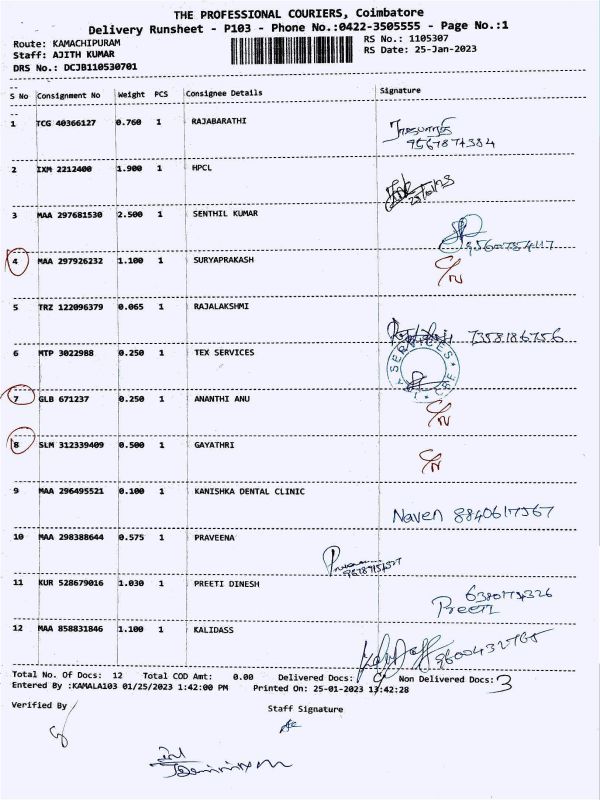 THE PROFESSIONAL COURIERS, Coimbatore
Delivery Runsheet - P103 - Phone No.:0422-3505555 - Page No.:1
Route: KAMACHIPURAM RS No.: 1105307
Staff: AJITH KUMAR RS Date: 25-Jan-2023
DRS No.: DCJB110530701
S No Consignment No Weight PCS Consignee Details Signature
1 TCG 40366127 0.760 1 RAJABARATHI
2 IXM 2212400 1.900 1 HPCL
3 MAA 297681530 2.500 1 SENTHIL KUMAR
4 MAA 297926232 1.100 1 SURYAPRAKASH
5 TRZ 122096379 0.065 1 RAJALAKSHMI 7358186756
6 MTP 3022988 0.250 1 TEX SERVICES
SERVICES
7 GLB 671237 0.250 1 ANANTHI ANU
8 SLM 312339409 0.500 1 GAYATHRI
9 MAA 296495521 0.100 1 KANISHKA DENTAL CLINIC
Naven 8840617567
10 MAA 298388644 0.575 1 PRAVEENA
11 KUR 528679016 1.030 1 PREETI DINESH
Preeti
12 MAA 858831846 1.100 1 KALIDASS
9600432765
Total No. Of Docs: 12 Total COD Amt: 0.00 Delivered Docs: 9 Non Delivered Docs: 3
Entered By :KAMALA103 01/25/2023 1:42:00 PM Printed On: 25-01-2023 13:42:28
Verified By Staff Signature